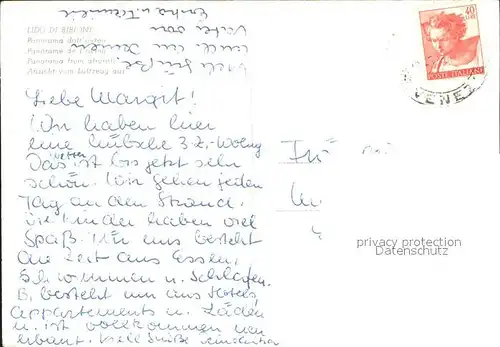 LIDO DI BIBIONE
Panorama dall'aereo
Panorame de l'avion
Panorama from aircraft
Ansicht vom Luftzeug aus
40
LIRE
POSTE ITALIANE
VENEZ
Liebe Margit!
Wir haben hier
eine hübsche 3 Z.-Wohng
Das Wetter ist bis jetzt sehr
schön. Wir gehen jeden
Tag an den Strand,
die Kinder haben viel
Spaß. Für uns besteht
die Zeit aus Essen,
Schwimmen u. Schlafen.
B. besteht nur aus Hotels,
Appartements u. Läden
u. ist vollkommen neu
erbaut. Viele Grüße
viele Grüße
und
von
privacy protection
Datenschutz